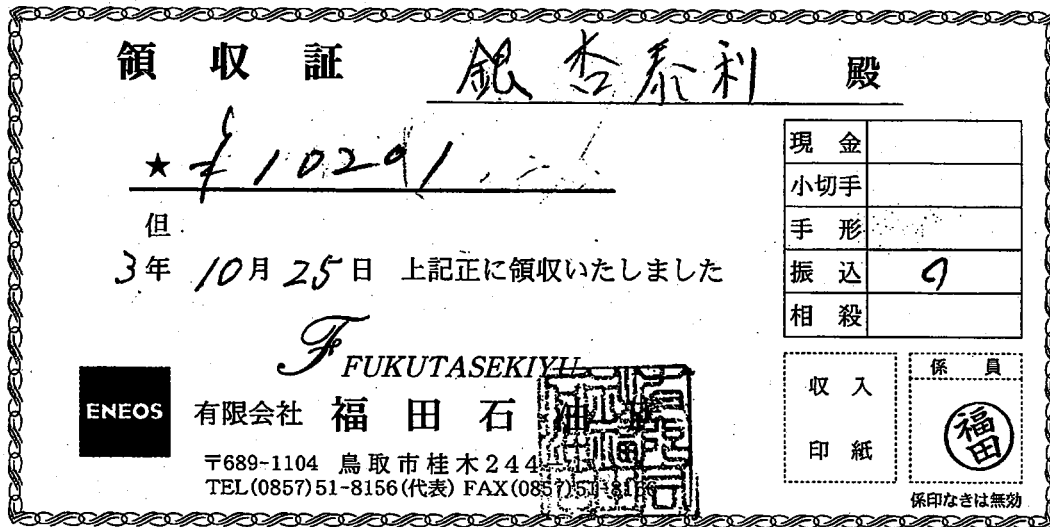 領収証 銀杏泰利 殿
★ ¥10291
但
3年 10月 25日 上記正に領収いたしました
現金
小切手
手形
振込
相殺
F FUKUTASEKIYU
ENEOS 有限会社 福田石油
〒689-1104 鳥取市桂木244
TEL(0857)51-8156(代表) FAX(0857)51-8156
収入
印紙
係員
福田
係印なきは無効